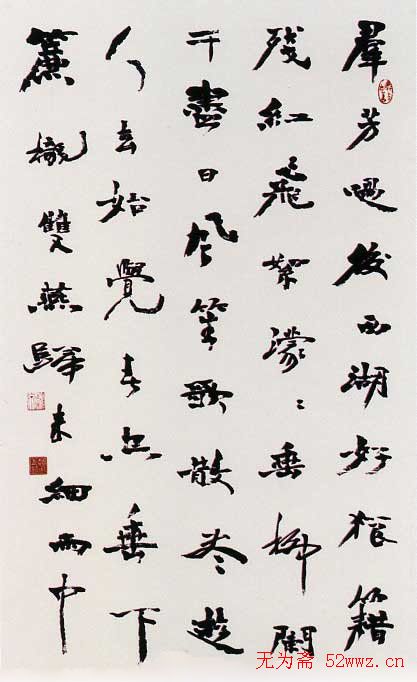 羣芳過後西湖好狼籍
殘紅飛絮濛〻垂柳闌
干盡日風笙歌散尽遊
人去始覺春空垂下
簾櫳雙燕歸来細雨中
无为斋 52wwz.cn